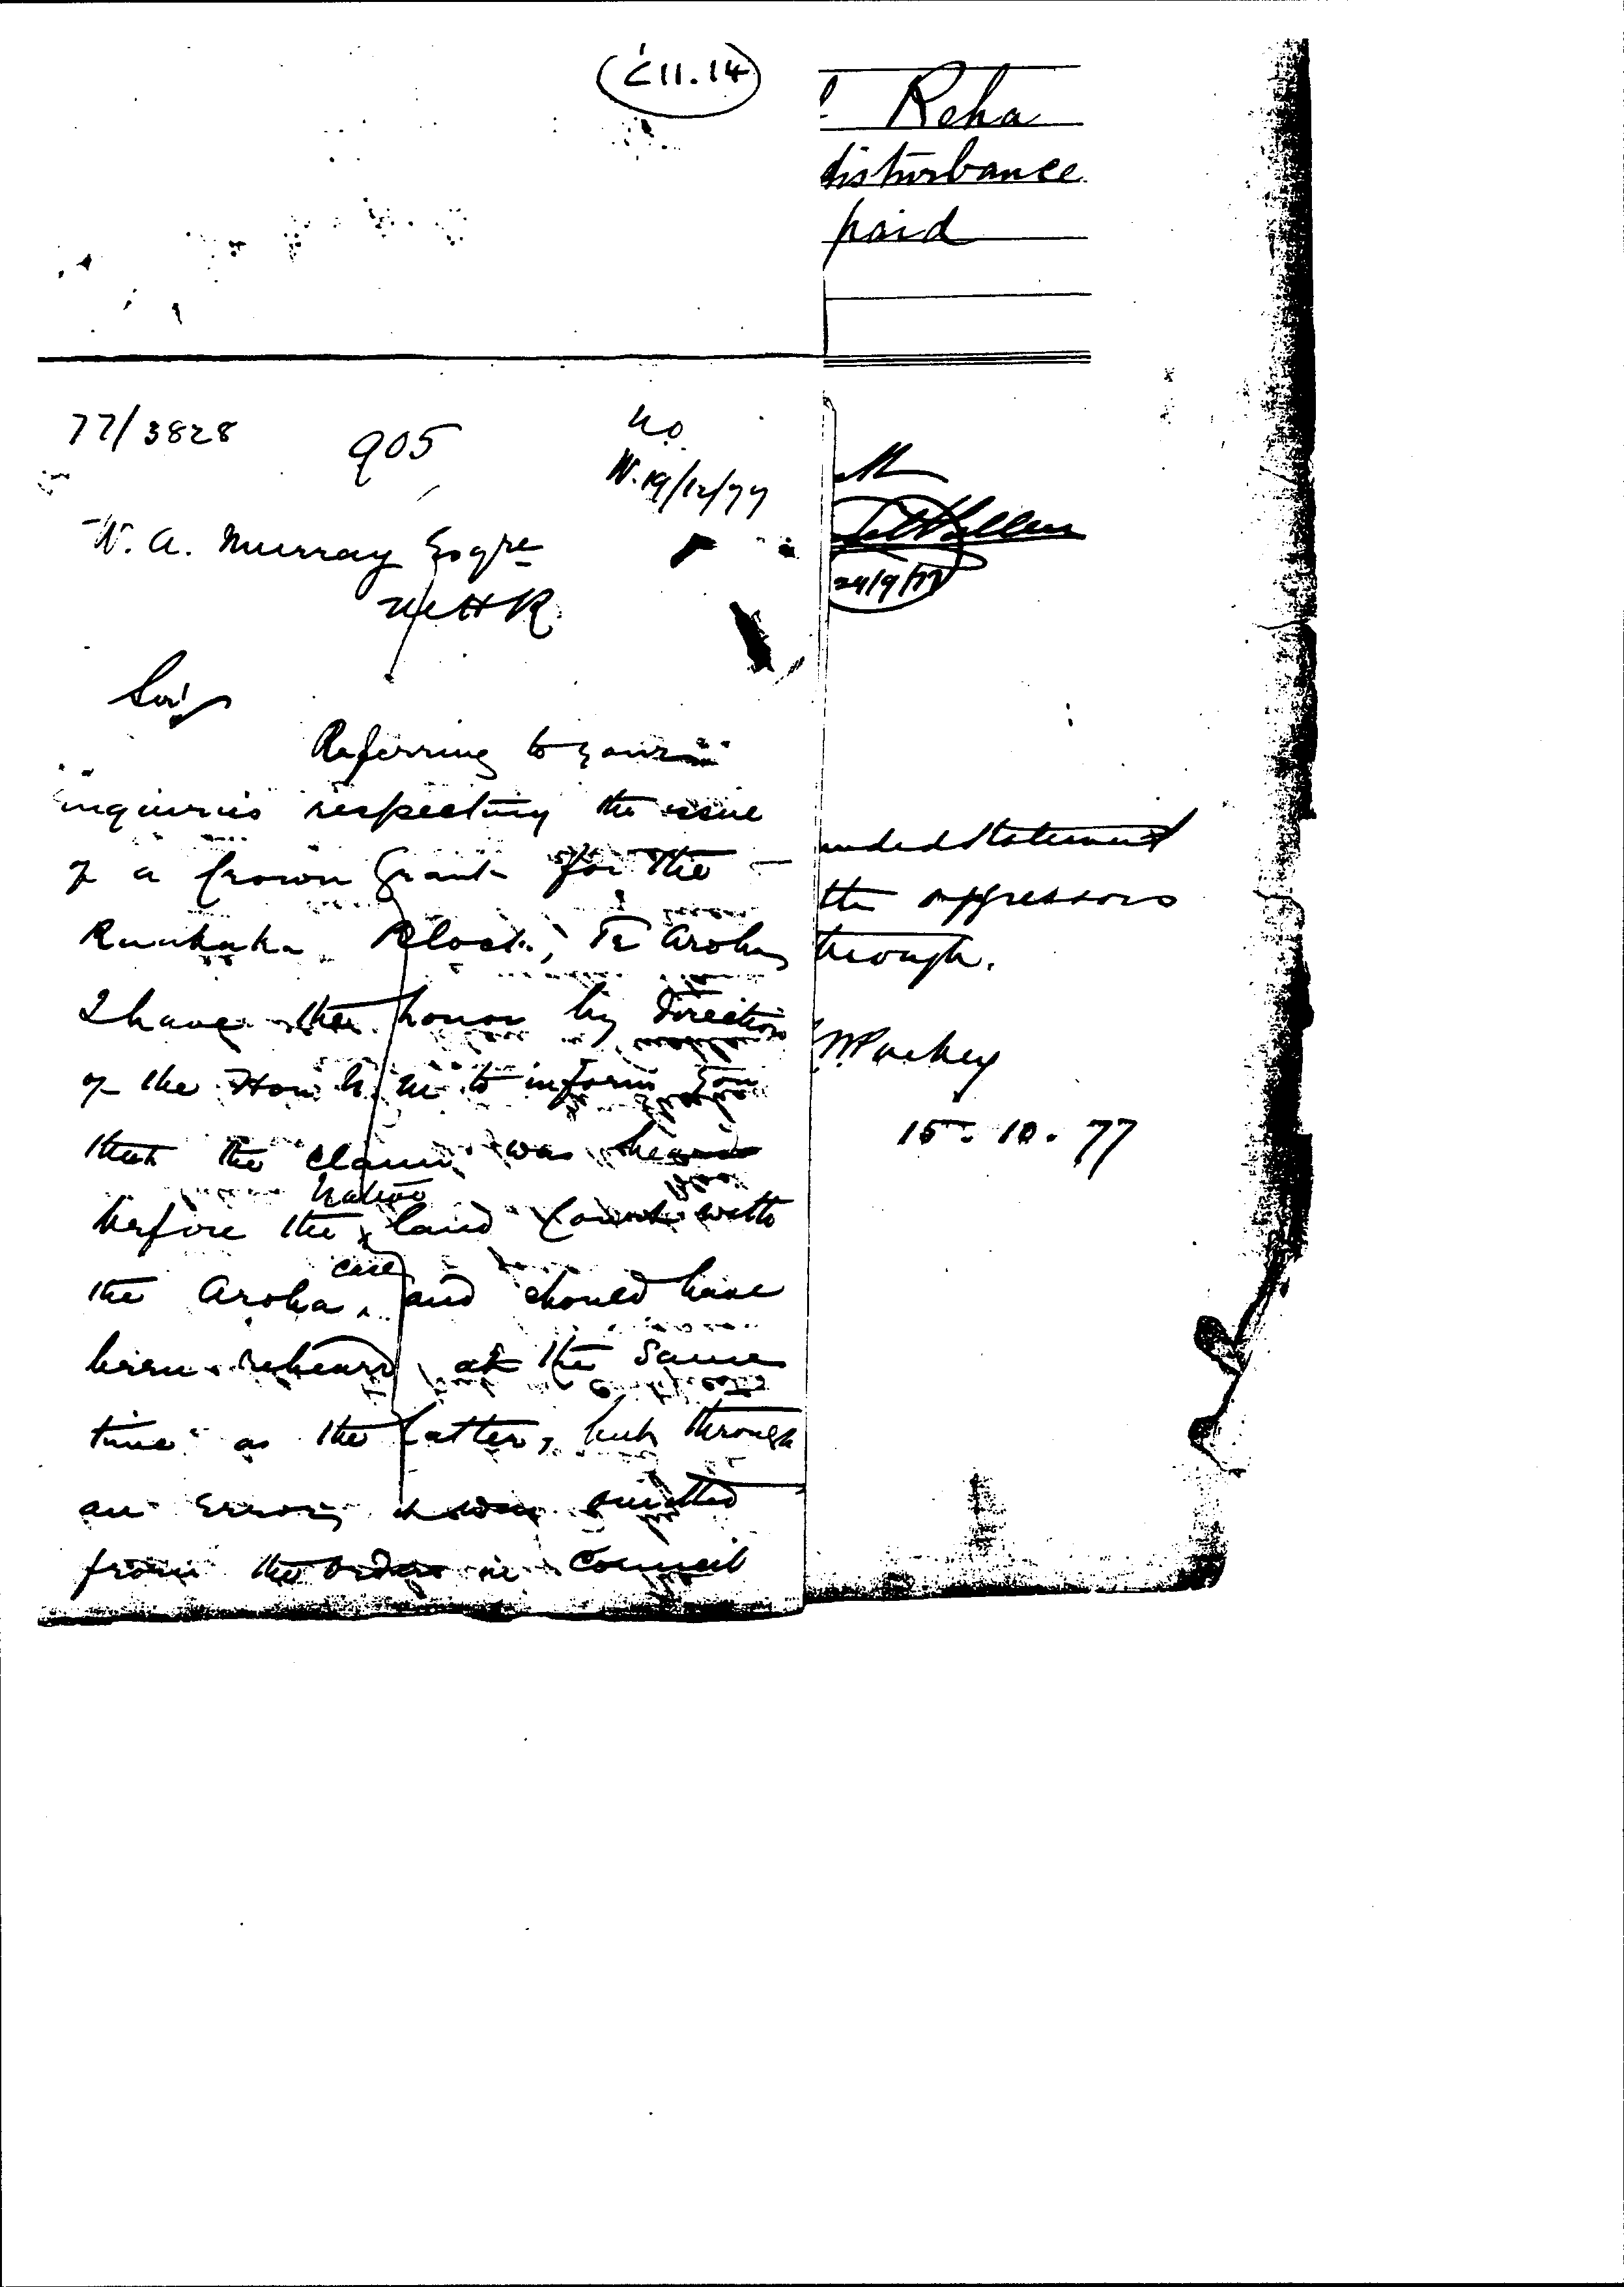 C11.14
Reha
disturbance
paid
77/3828
905
N.O.
W. 19/12/77
W. A. Murray Esqre
MHR
24/9/77
Sir
Referring to your
inquiries respecting the issue
of a Crown Grant for the
Ruakaka Block, Te Aroha,
I have the honor by direction
of the Hon N. M. to inform you
that the claim was heard
before the Native land Court with
the Aroha case, and should have
been reheard at the same
time as the latter, but through
an error, it was omitted
from the order in Council
nded statement
the aggressors
through.
Puckey
15. 10. 77